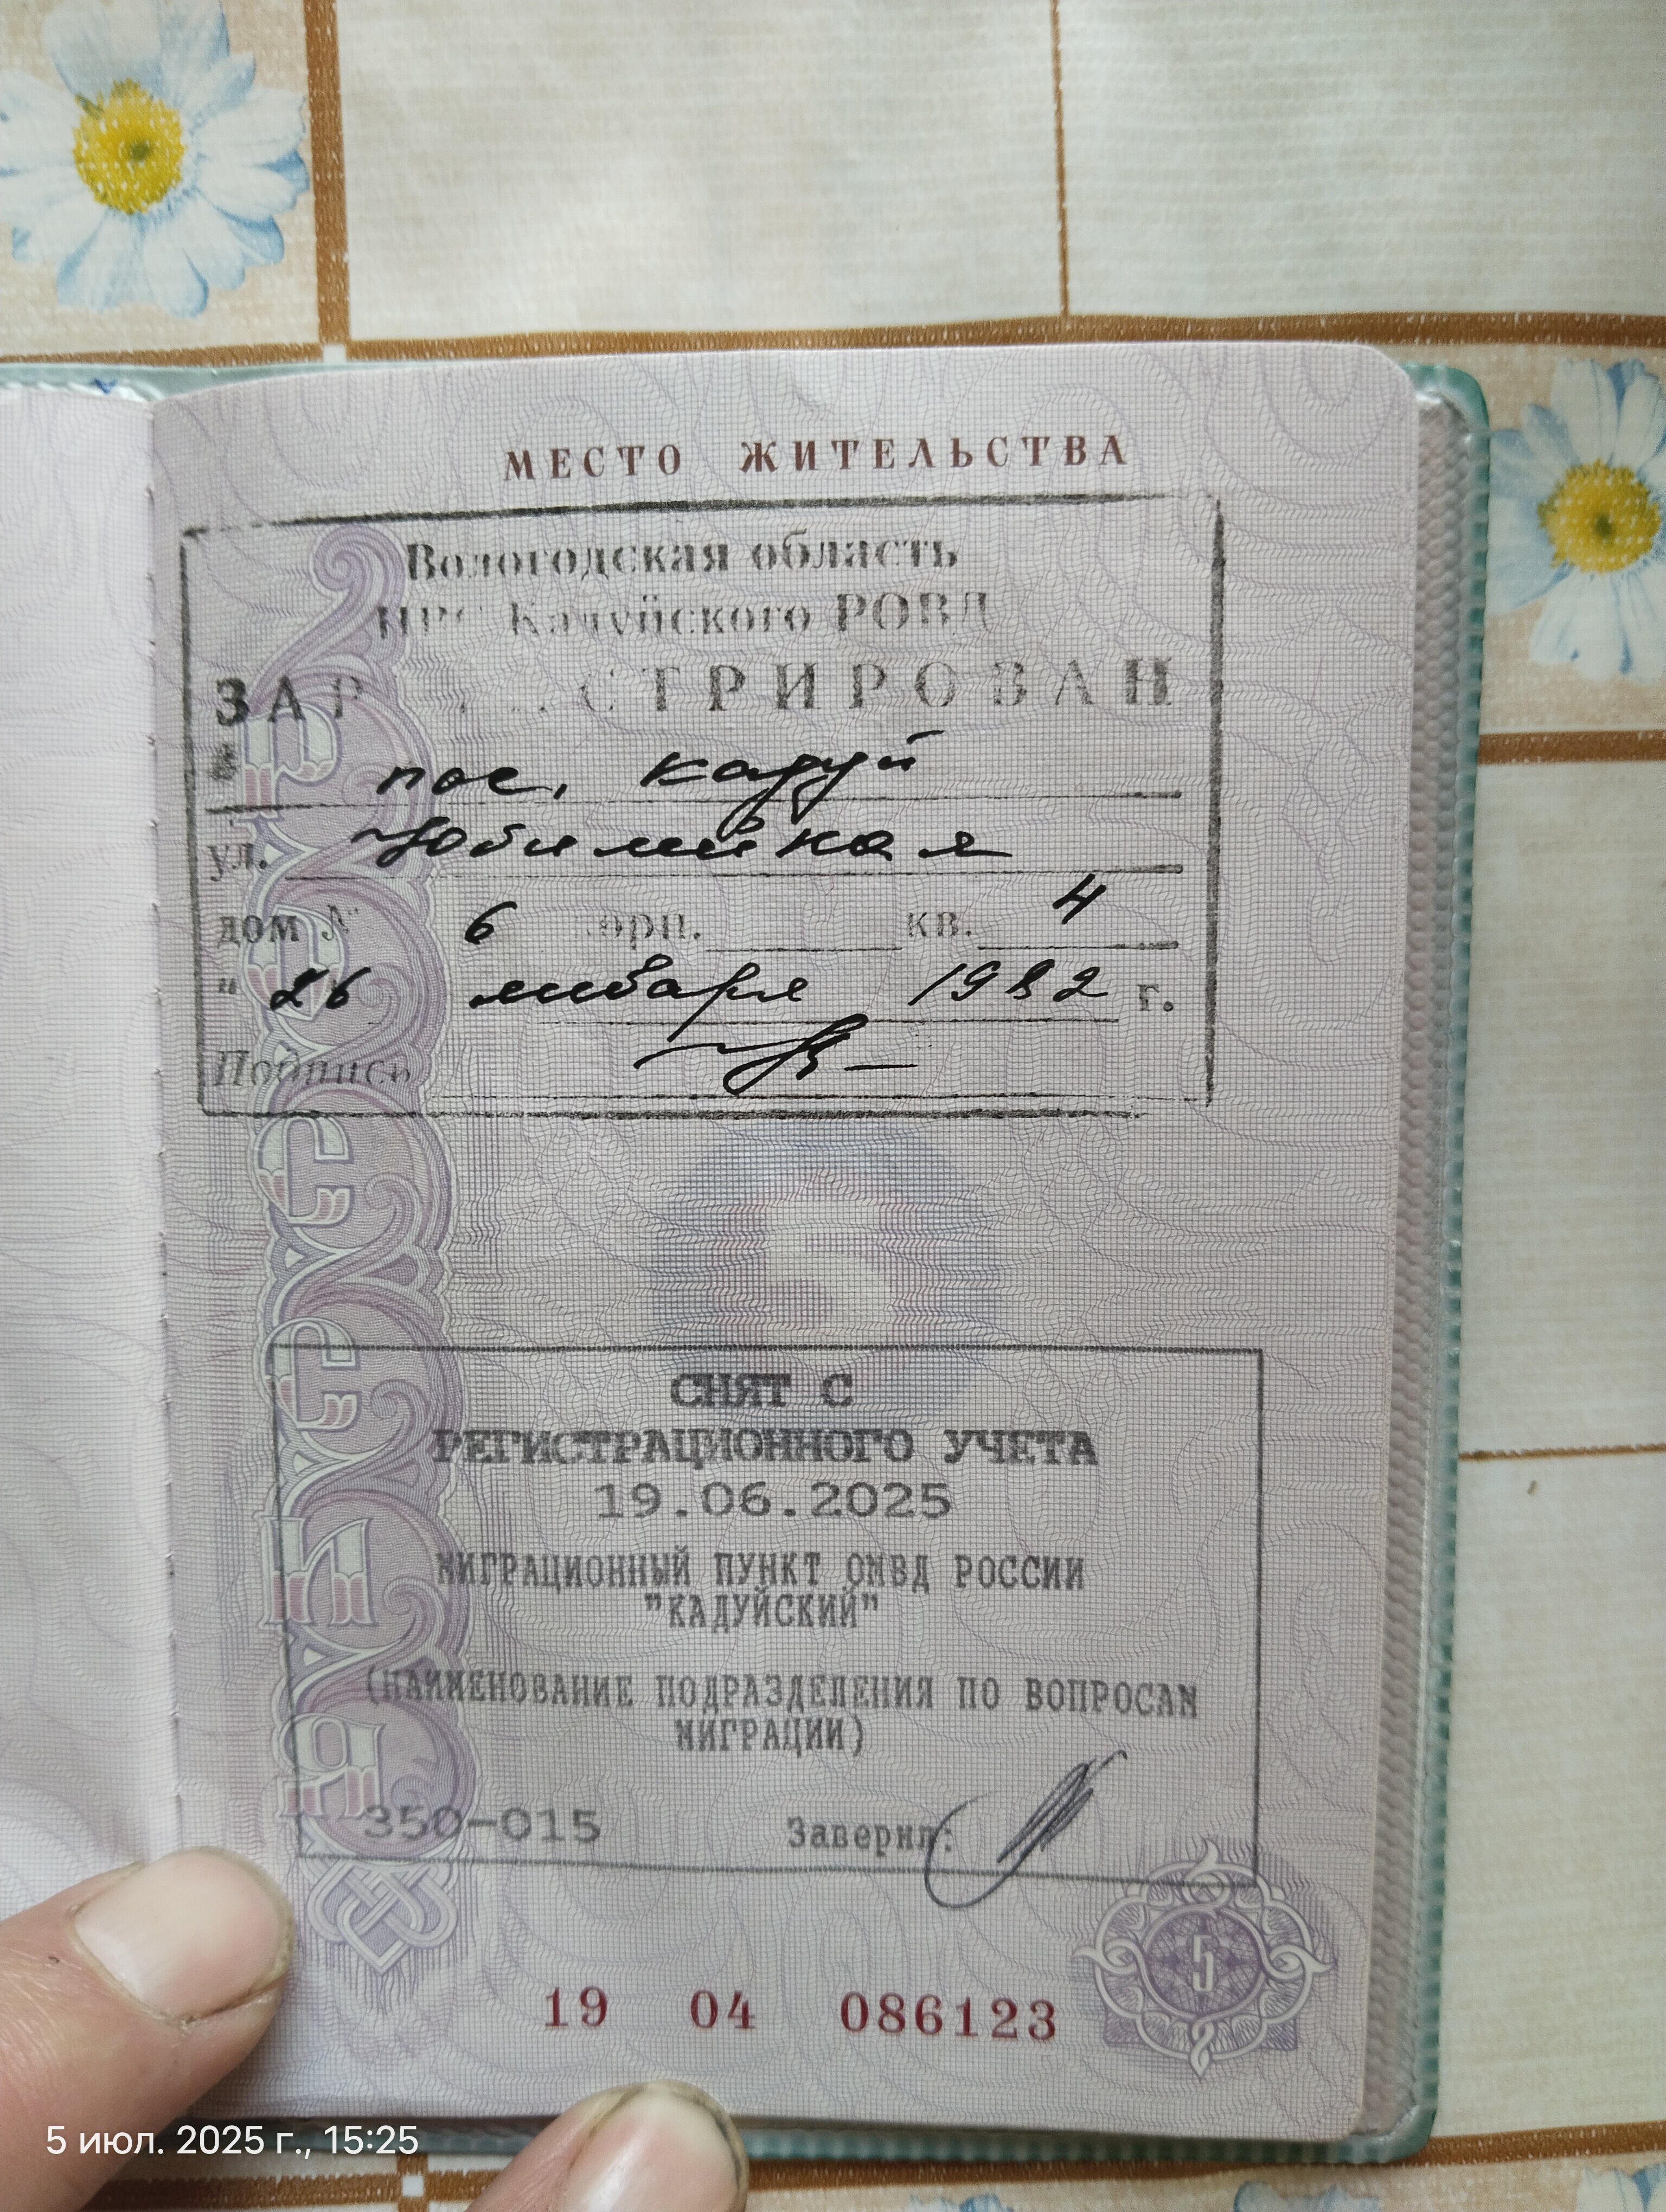 МЕСТО ЖИТЕЛЬСТВА
Вологодская область
ПРС Кадуйского РОВД
ЗАР СТРИРОВАН
пос. Кадуй
ул. Юбилейная
дом № 6 корп. кв. 4
" 26 января 1982 г.
Подпись
5
СНЯТ С
РЕГИСТРАЦИОННОГО УЧЕТА
19.06.2025
МИГРАЦИОННЫЙ ПУНКТ ОМВД РОССИИ
"КАДУЙСКИЙ"
(НАИМЕНОВАНИЕ ПОДРАЗДЕЛЕНИЯ ПО ВОПРОСАМ
МИГРАЦИИ)
350-015 Заверил:
5
19 04 086123
РОССИЯ
5 июл. 2025 г., 15:25